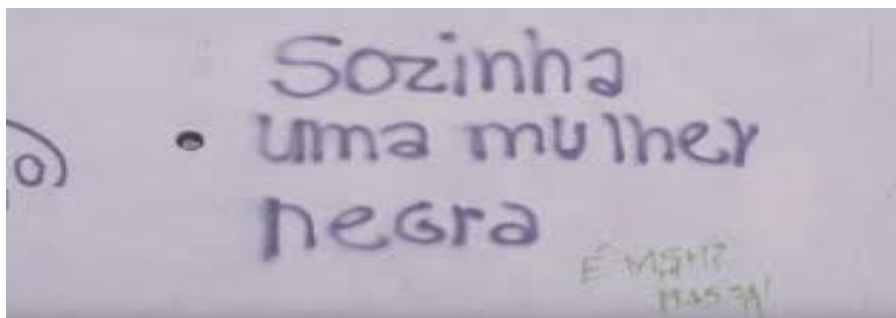 Sozinha
uma mulher
negra
É